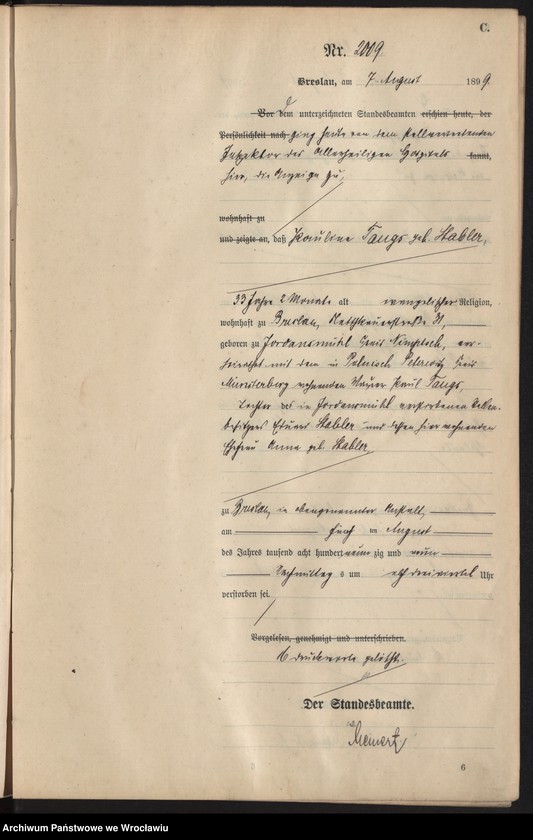 C.
Nr. 2009
Breslau, am 7. August 1899.
Vor Dem unterzeichneten Standesbeamten erschien heute, der
Persönlichkeit nach ging heute von dem stellvertretenden
Inspektor des Allerheiligen Hospitals kannt,
hier, die Anzeige zu,
wohnhaft zu
und zeigte an, daß Pauline Taugs geb. Stabler,
33 Jahre 2 Monate alt evangelischer Religion,
wohnhaft zu Breslau, 31,
geboren zu Jordansmühl Kreis Nimptsch, ver-
heirathet mit dem in Polnisch Kreis
Münsterberg wohnenden Paul Taugs
Tochter des in Jordansmühl verstorbenen
besitzers Eduard Stabler und dessen hier wohnenden
Ehefrau Anna geb. Stabler
zu Breslau, in obengenannter Anstalt,
am fünf ten August
des Jahres tausend acht hundert neun zig und neun
Nachmittag s um elf dreiviertel Uhr
verstorben sei.
Vorgelesen, genehmigt und unterschrieben.
16 Druckworte gelöscht.
Der Standesbeamte.
6
Archiwum Państwowe we Wrocławiu